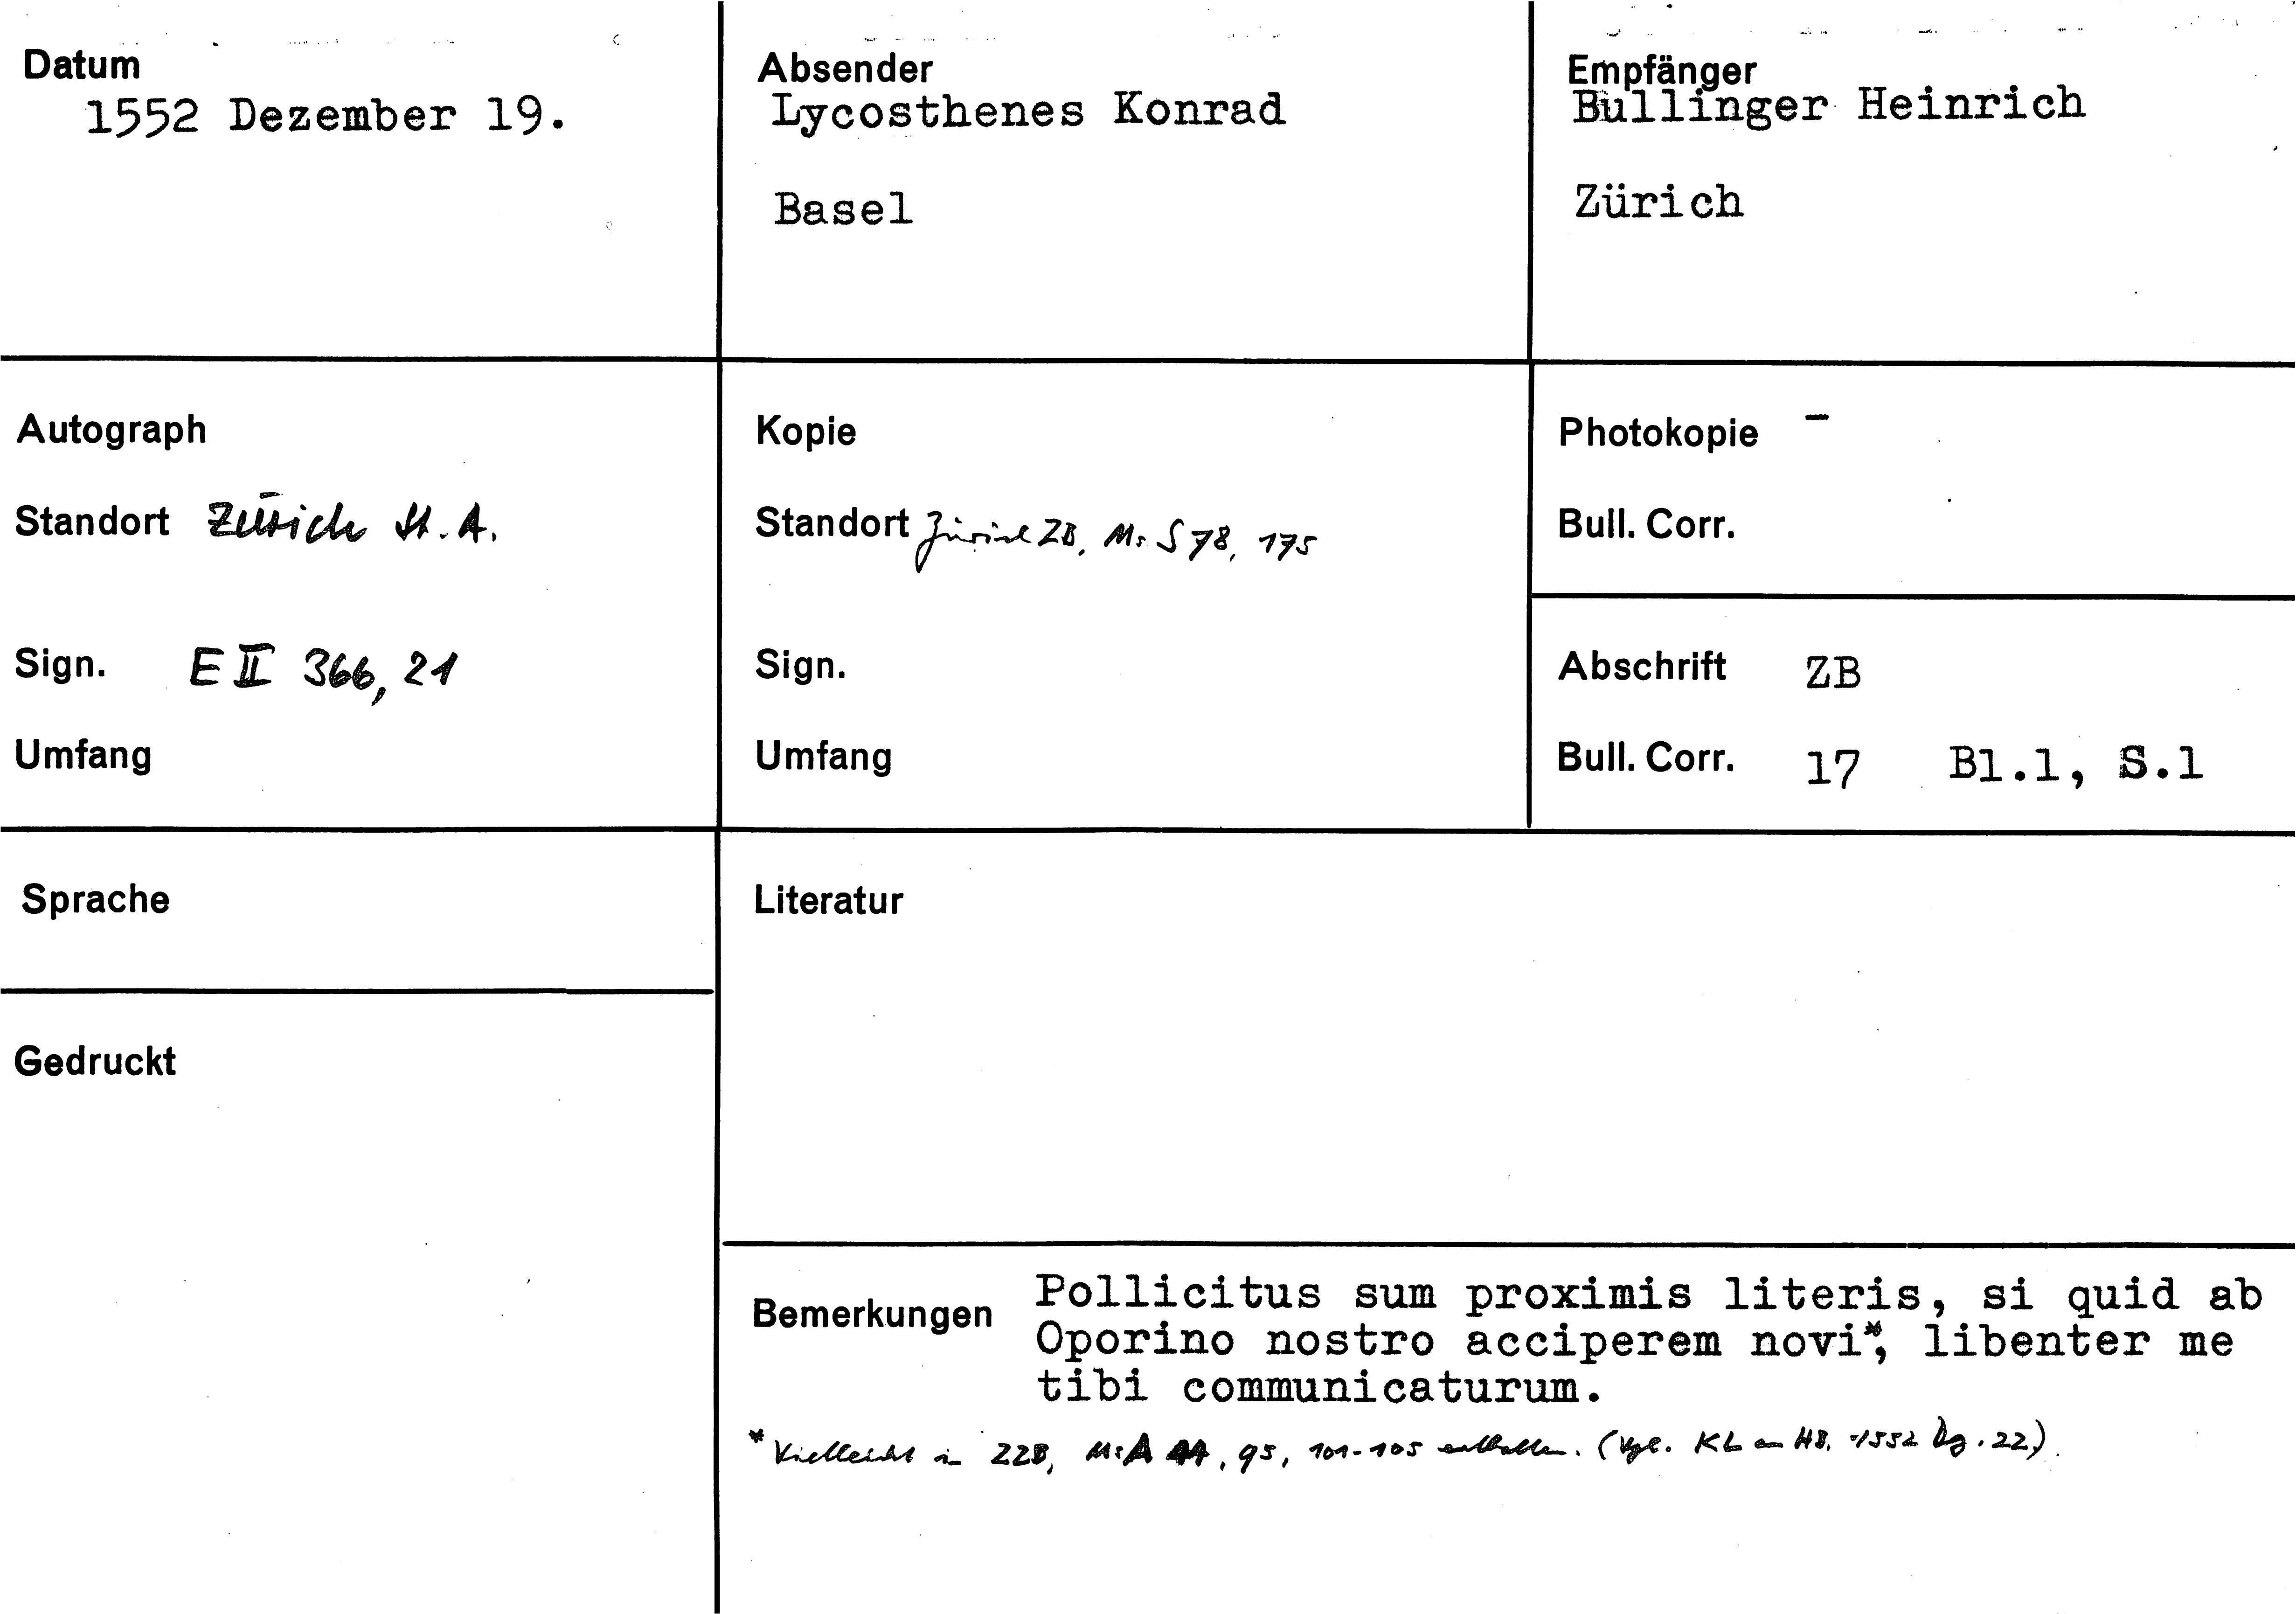 Datum
1552 Dezember 19.
Absender
Lycosthenes Konrad
Basel
Empfänger
Bullinger Heinrich
Zürich
Autograph
Standort Zürich St.A.
Sign. E II 366, 21
Umfang
Kopie
Standort Zürich ZB, Ms S 78, 175
Sign.
Umfang
Photokopie –
Bull. Corr.
Abschrift ZB
Bull. Corr. 17 Bl.1, S.1
Sprache
Gedruckt
Literatur
Bemerkungen Pollicitus sum proximis literis, si quid ab
Oporino nostro acciperem novi*, libenter me
tibi communicaturum.
* Vielleicht in ZZB, Ms A 44, 95, 101-105 enthalten. (Vgl. KL an HB, 1552 Dz. 22).